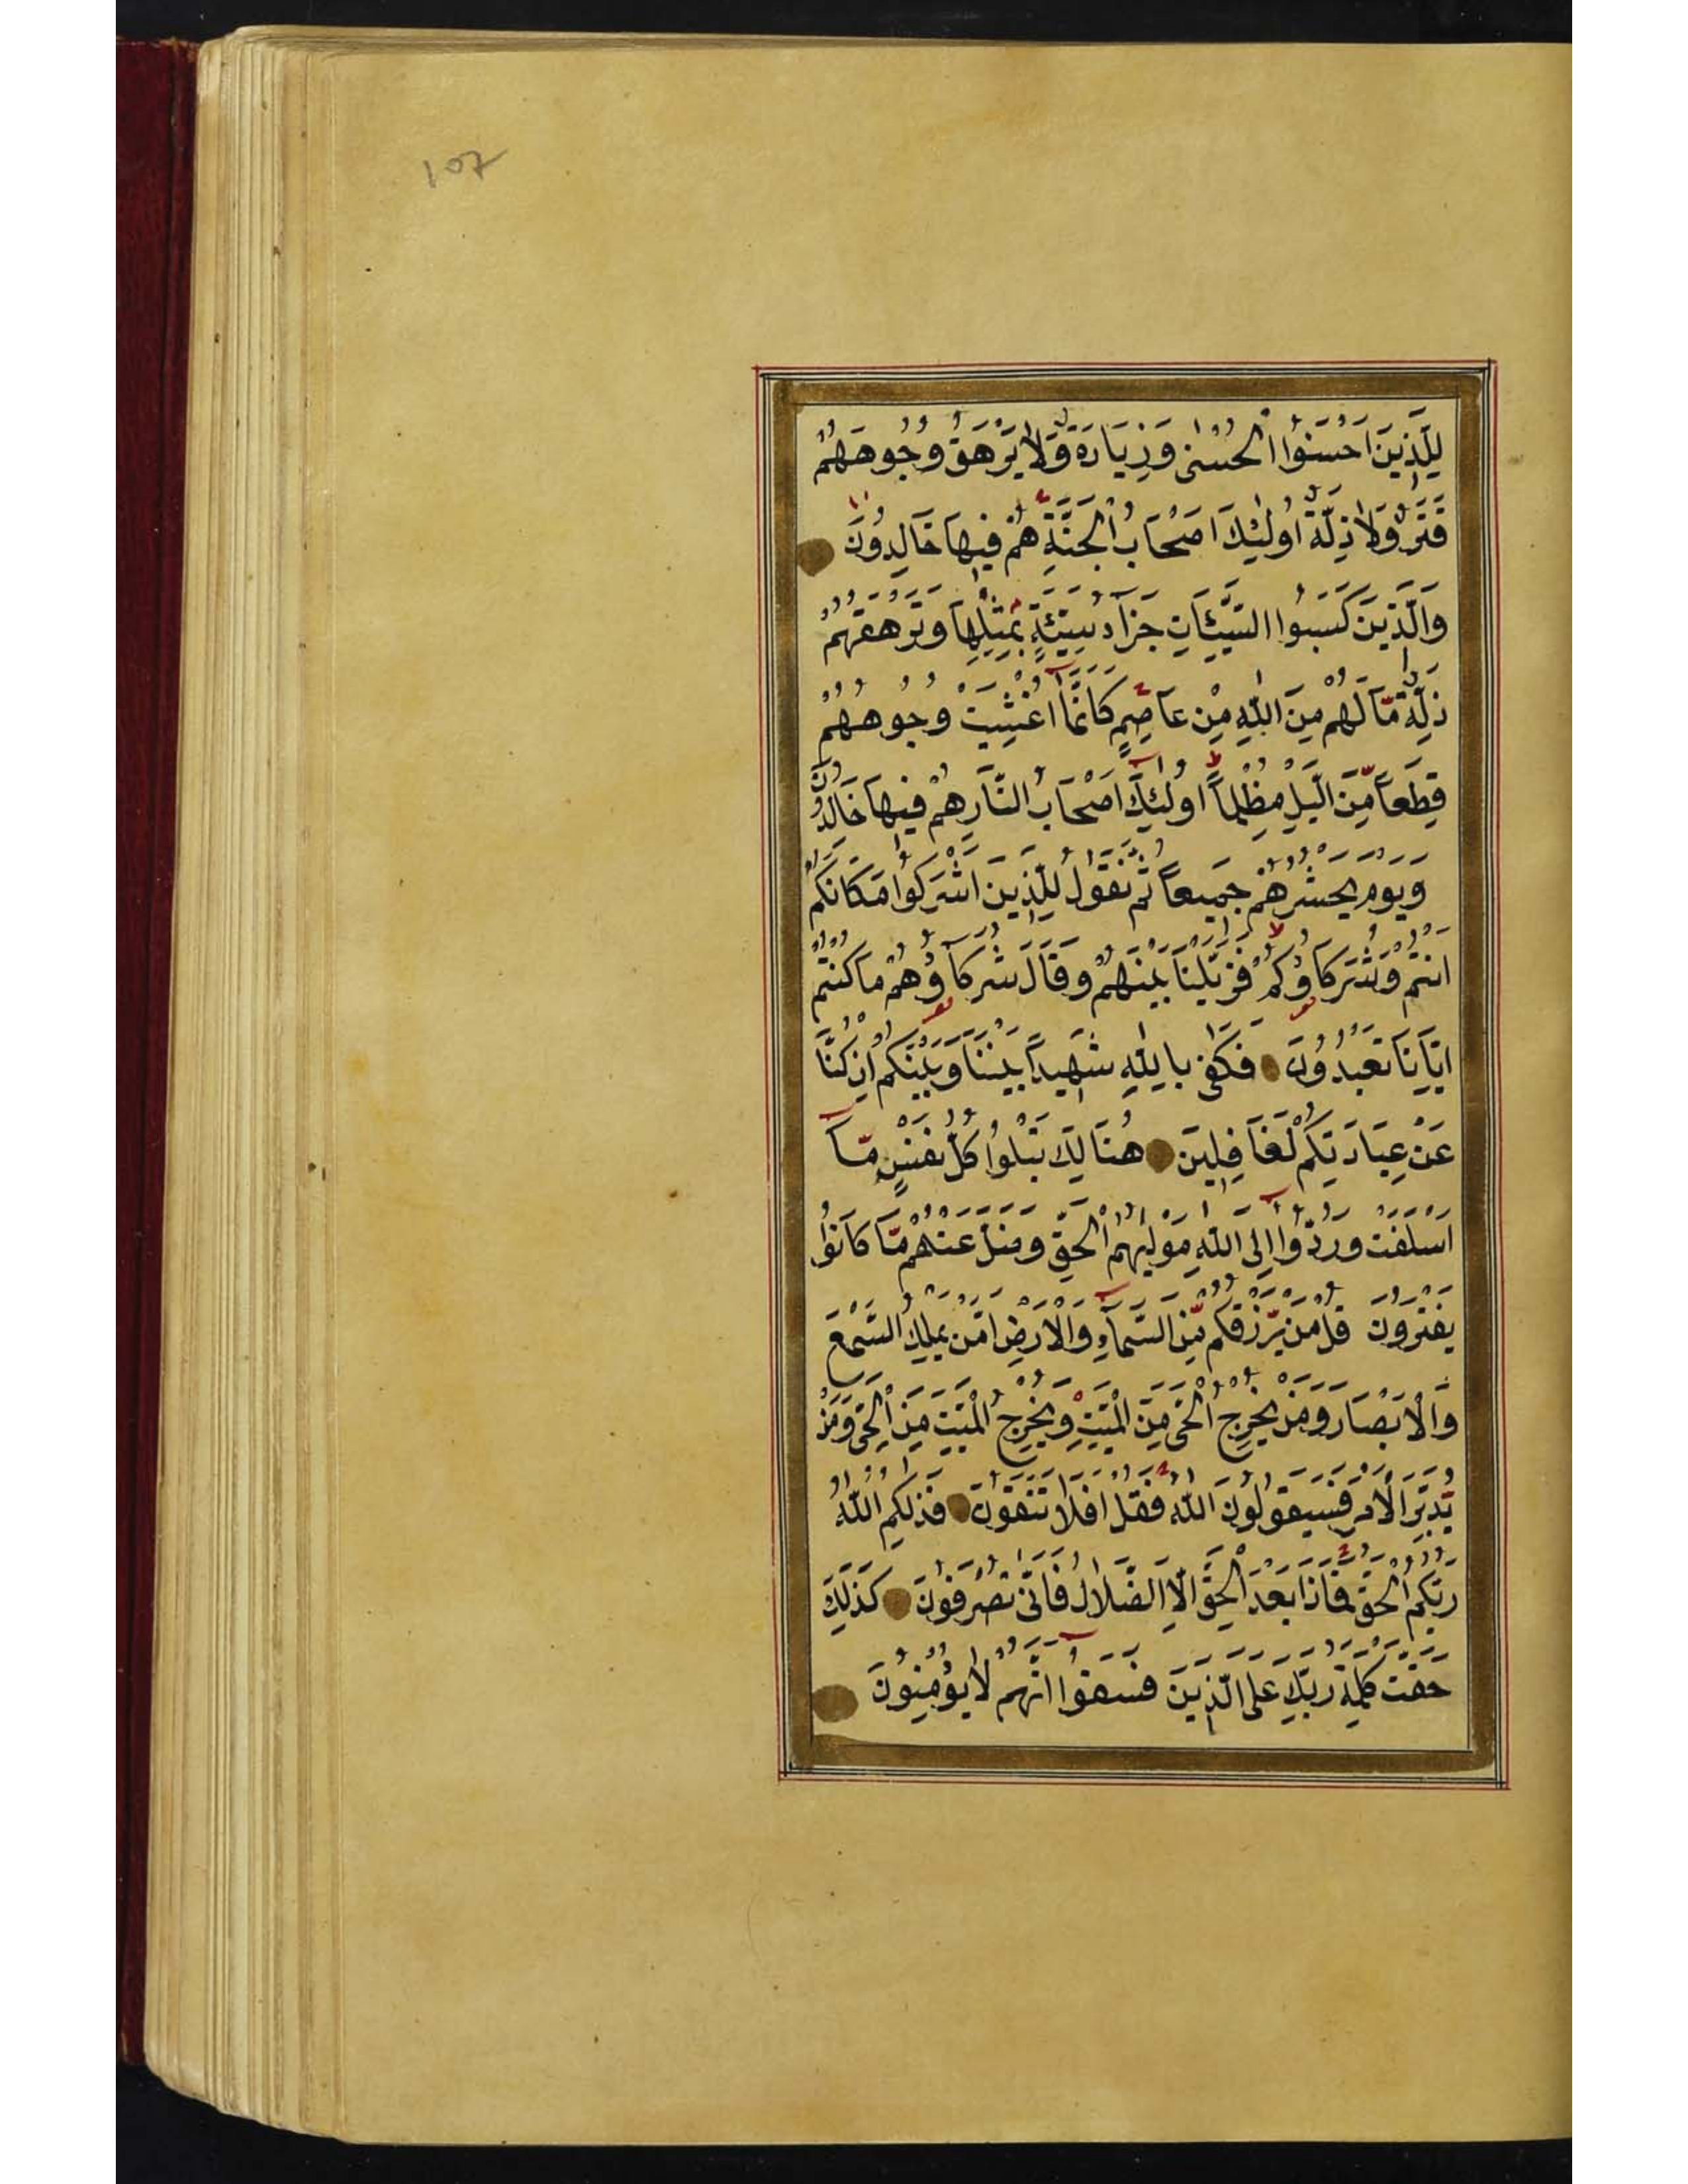 107
لِلَّذِينَ اَحْسَنُوا الْحُسْنٰى وَزِيَادَةٌ وَلَا يَرْهَقُ وُجُوهَهُمْ
قَتَرٌ وَلَا ذِلَّةٌ اُولٰئِكَ اَصْحَابُ الْجَنَّةِ هُمْ فِيهَا خَالِدُونَ
وَالَّذِينَ كَسَبُوا السَّيِّئَاتِ جَزَآءُ سَيِّئَةٍ بِمِثْلِهَا وَتَرْهَقُهُمْ
ذِلَّةٌ مَّا لَهُمْ مِنَ اللّٰهِ مِنْ عَاصِمٍ كَاَنَّمَآ اُغْشِيَتْ وُجُوهُهُمْ
قِطَعاً مِّنَ الَّيْلِ مُظْلِماً اُولٰئِكَ اَصْحَابُ النَّارِ هُمْ فِيهَا خَالِدُونَ
وَيَوْمَ يَحْشُرُهُمْ جَمِيعاً ثُمَّ نَقُولُ لِلَّذِينَ اَشْرَكُوا مَكَانَكُمْ
اَنْتُمْ وَشُرَكَاؤُكُمْ فَزَيَّلْنَا بَيْنَهُمْ وَقَالَ شُرَكَآؤُهُمْ مَا كُنْتُمْ
اِيَّانَا تَعْبُدُونَ فَكَفٰى بِاللّٰهِ شَهِيداً بَيْنَنَا وَبَيْنَكُمْ اِنْ كُنَّا
عَنْ عِبَادَتِكُمْ لَغَافِلِينَ هُنَالِكَ تَبْلُوا كُلُّ نَفْسٍ مَّآ
اَسْلَفَتْ وَرُدُّوا اِلَى اللّٰهِ مَوْلٰيهُمُ الْحَقِّ وَضَلَّ عَنْهُمْ مَّا كَانُوا
يَفْتَرُونَ قُلْ مَنْ يَّرْزُقُكُمْ مِّنَ السَّمَآءِ وَالْاَرْضِ اَمَّنْ يَمْلِكُ السَّمْعَ
وَالْاَبْصَارَ وَمَنْ يُخْرِجُ الْحَىَّ مِنَ الْمَيِّتِ وَيُخْرِجُ الْمَيِّتَ مِنَ الْحَىِّ وَمَنْ
يُّدَبِّرُ الْاَمْرَ فَسَيَقُولُونَ اللّٰهُ فَقُلْ اَفَلَا تَتَّقُونَ فَذٰلِكُمُ اللّٰهُ
رَبُّكُمُ الْحَقُّ فَمَاذَا بَعْدَ الْحَقِّ اِلَّا الضَّلَالُ فَاَنّٰى تُصْرَفُونَ كَذٰلِكَ
حَقَّتْ كَلِمَةُ رَبِّكَ عَلَى الَّذِينَ فَسَقُوا اَنَّهُمْ لَا يُؤْمِنُونَ